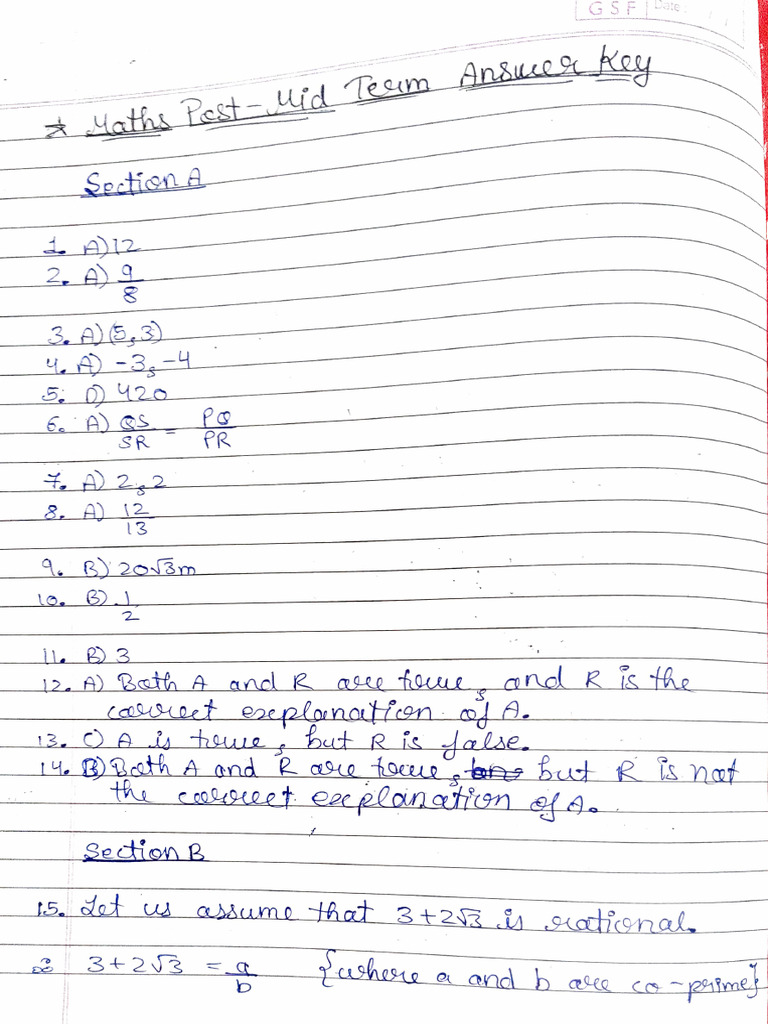 GSF Date:
* Maths Post-Mid Term Answer Key
Section A
1. A) 12
2. A) 9/8
3. A) (5,3)
4. A) -3, -4
5. D) 420
6. A) QS/SR = PQ/PR
7. A) 2, 2
8. A) 12/13
9. B) 20√3m
10. B) 1/2
11. B) 3
12. A) Both A and R are true, and R is the
correct explanation of A.
13. C) A is true, but R is false.
14. B) Both A and R are true, but R is not
the correct explanation of A.
Section B
15. Let us assume that 3+2√3 is rational.
∴ 3+2√3 = a/b {where a and b are co-prime}